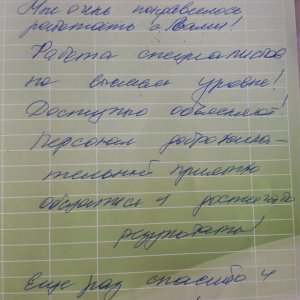 Мне очень понравилось
работать с Вами!
Работа специалистов
на высшем уровне!
Доступно объясняют!
Персонал доброжела-
тельный приятно
общаться и
результаты!
Еще раз спасибо и